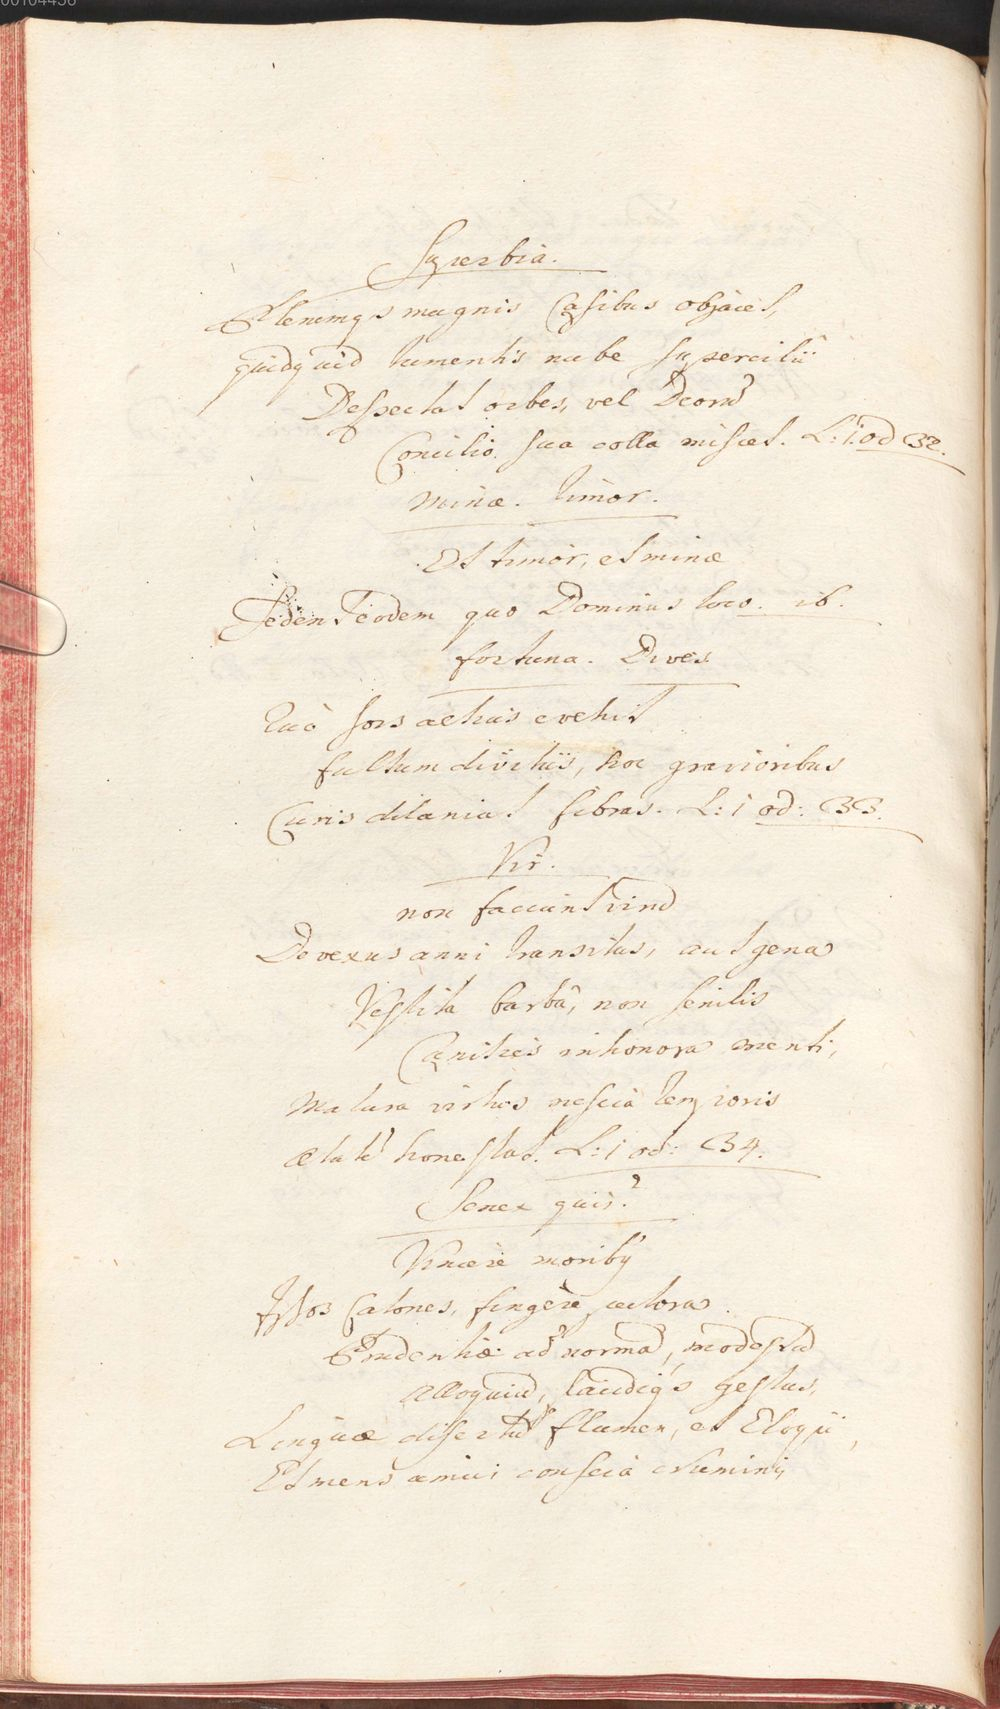 00104436
Superbia.
Plerumqs magnis Casibus objacet,
quidquid tumentis nube supercilii
Despectat orbes, vel Deorũ
Concilio sua colla miscet. L: 1. od 32.
Minæ. Timor.
Et timor, et minæ
Sedent eodem quo Dominus loco. ib.
fortuna. Dives
Quò sors altius evehit
fultum divitiis, hoc gravioribus
Curis dilaniat fibras. L: 1 od: 33.
Vir.
non faciunt virũ
Devexus anni transitus, aut gena
Vestita barbâ, non senilis
Canities inhonora menti,
Matura virtus nescia temporis
ætatẽ honestat. L: 1 od: 34.
Senex quis?
Vincere moribꝰ
Istos Catones, fingere pectora
Prudentiæ ad normã, modestũ
Alloquiũ, laudiqs gestus,
Linguæ disertũ flumen, et Eloqui,
Et mens amici conscia Numinis,